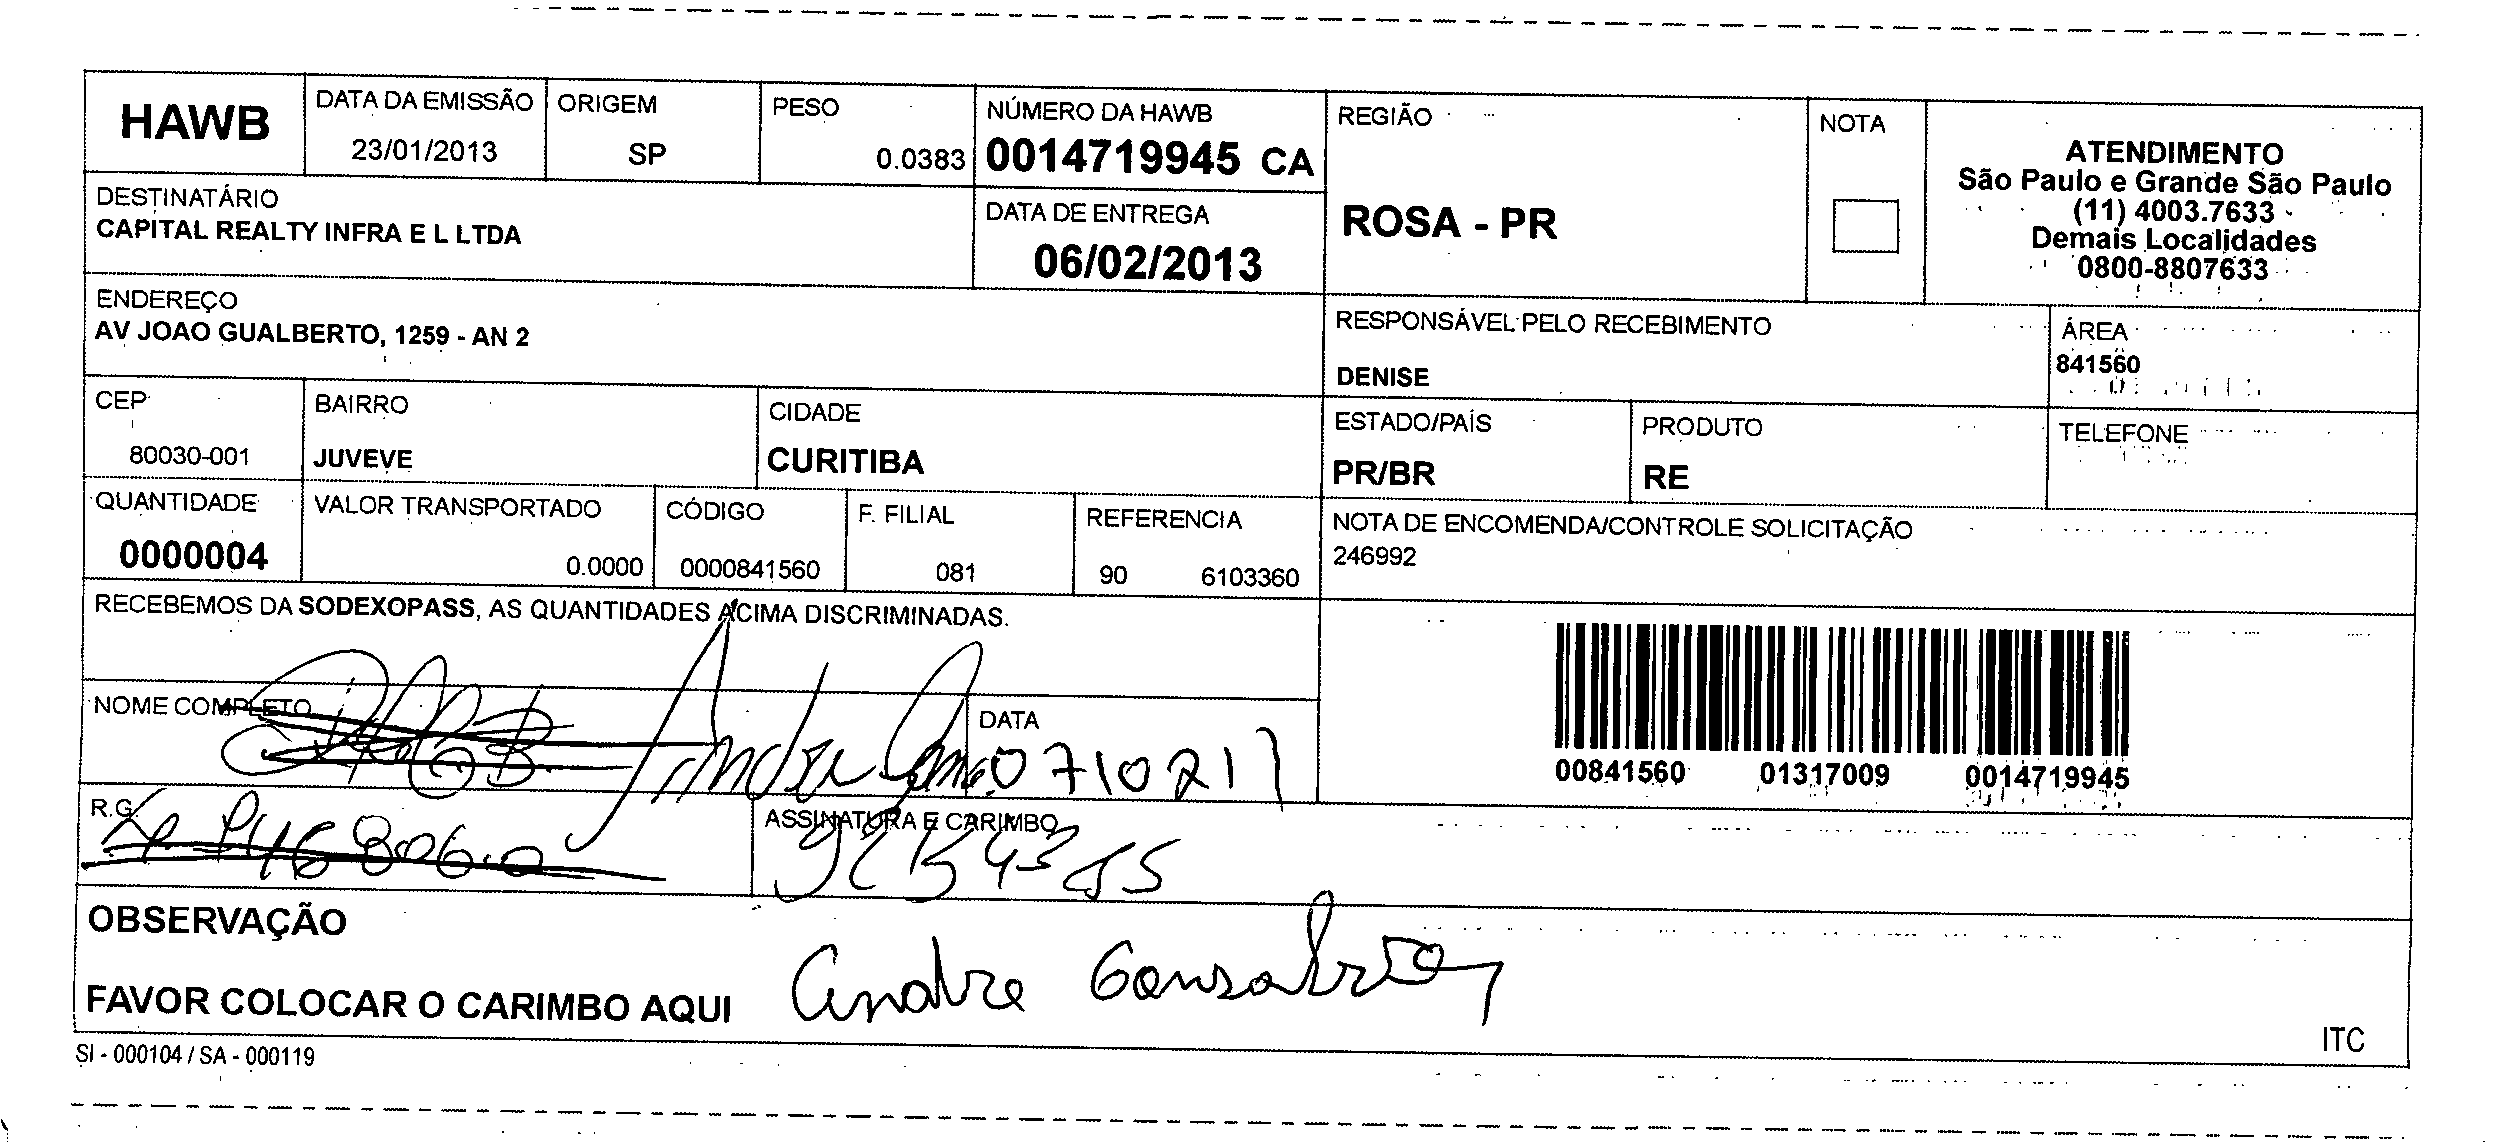 HAWB
DATA DA EMISSÃO
23/01/2013
ORIGEM
SP
PESO
0.0383
NÚMERO DA HAWB
0014719945 CA
REGIÃO
ROSA - PR
NOTA
ATENDIMENTO
São Paulo e Grande São Paulo
(11) 4003.7633
Demais Localidades
0800-8807633
DESTINATÁRIO
CAPITAL REALTY INFRA E L LTDA
DATA DE ENTREGA
06/02/2013
ENDEREÇO
AV JOAO GUALBERTO, 1259 - AN 2
RESPONSÁVEL PELO RECEBIMENTO
DENISE
ÁREA
841560
CEP
80030-001
BAIRRO
JUVEVE
CIDADE
CURITIBA
ESTADO/PAÍS
PR/BR
PRODUTO
RE
TELEFONE
QUANTIDADE
0000004
VALOR TRANSPORTADO
0.0000
CÓDIGO
0000841560
F. FILIAL
081
REFERENCIA
90 6103360
NOTA DE ENCOMENDA/CONTROLE SOLICITAÇÃO
246992
RECEBEMOS DA SODEXOPASS, AS QUANTIDADES ACIMA DISCRIMINADAS.
NOME COMPLETO
DATA
00841560 01317009 0014719945
R.G.
ASSINATURA E CARIMBO
OBSERVAÇÃO
FAVOR COLOCAR O CARIMBO AQUI
Andre
ITC
SI - 000104 / SA - 000119